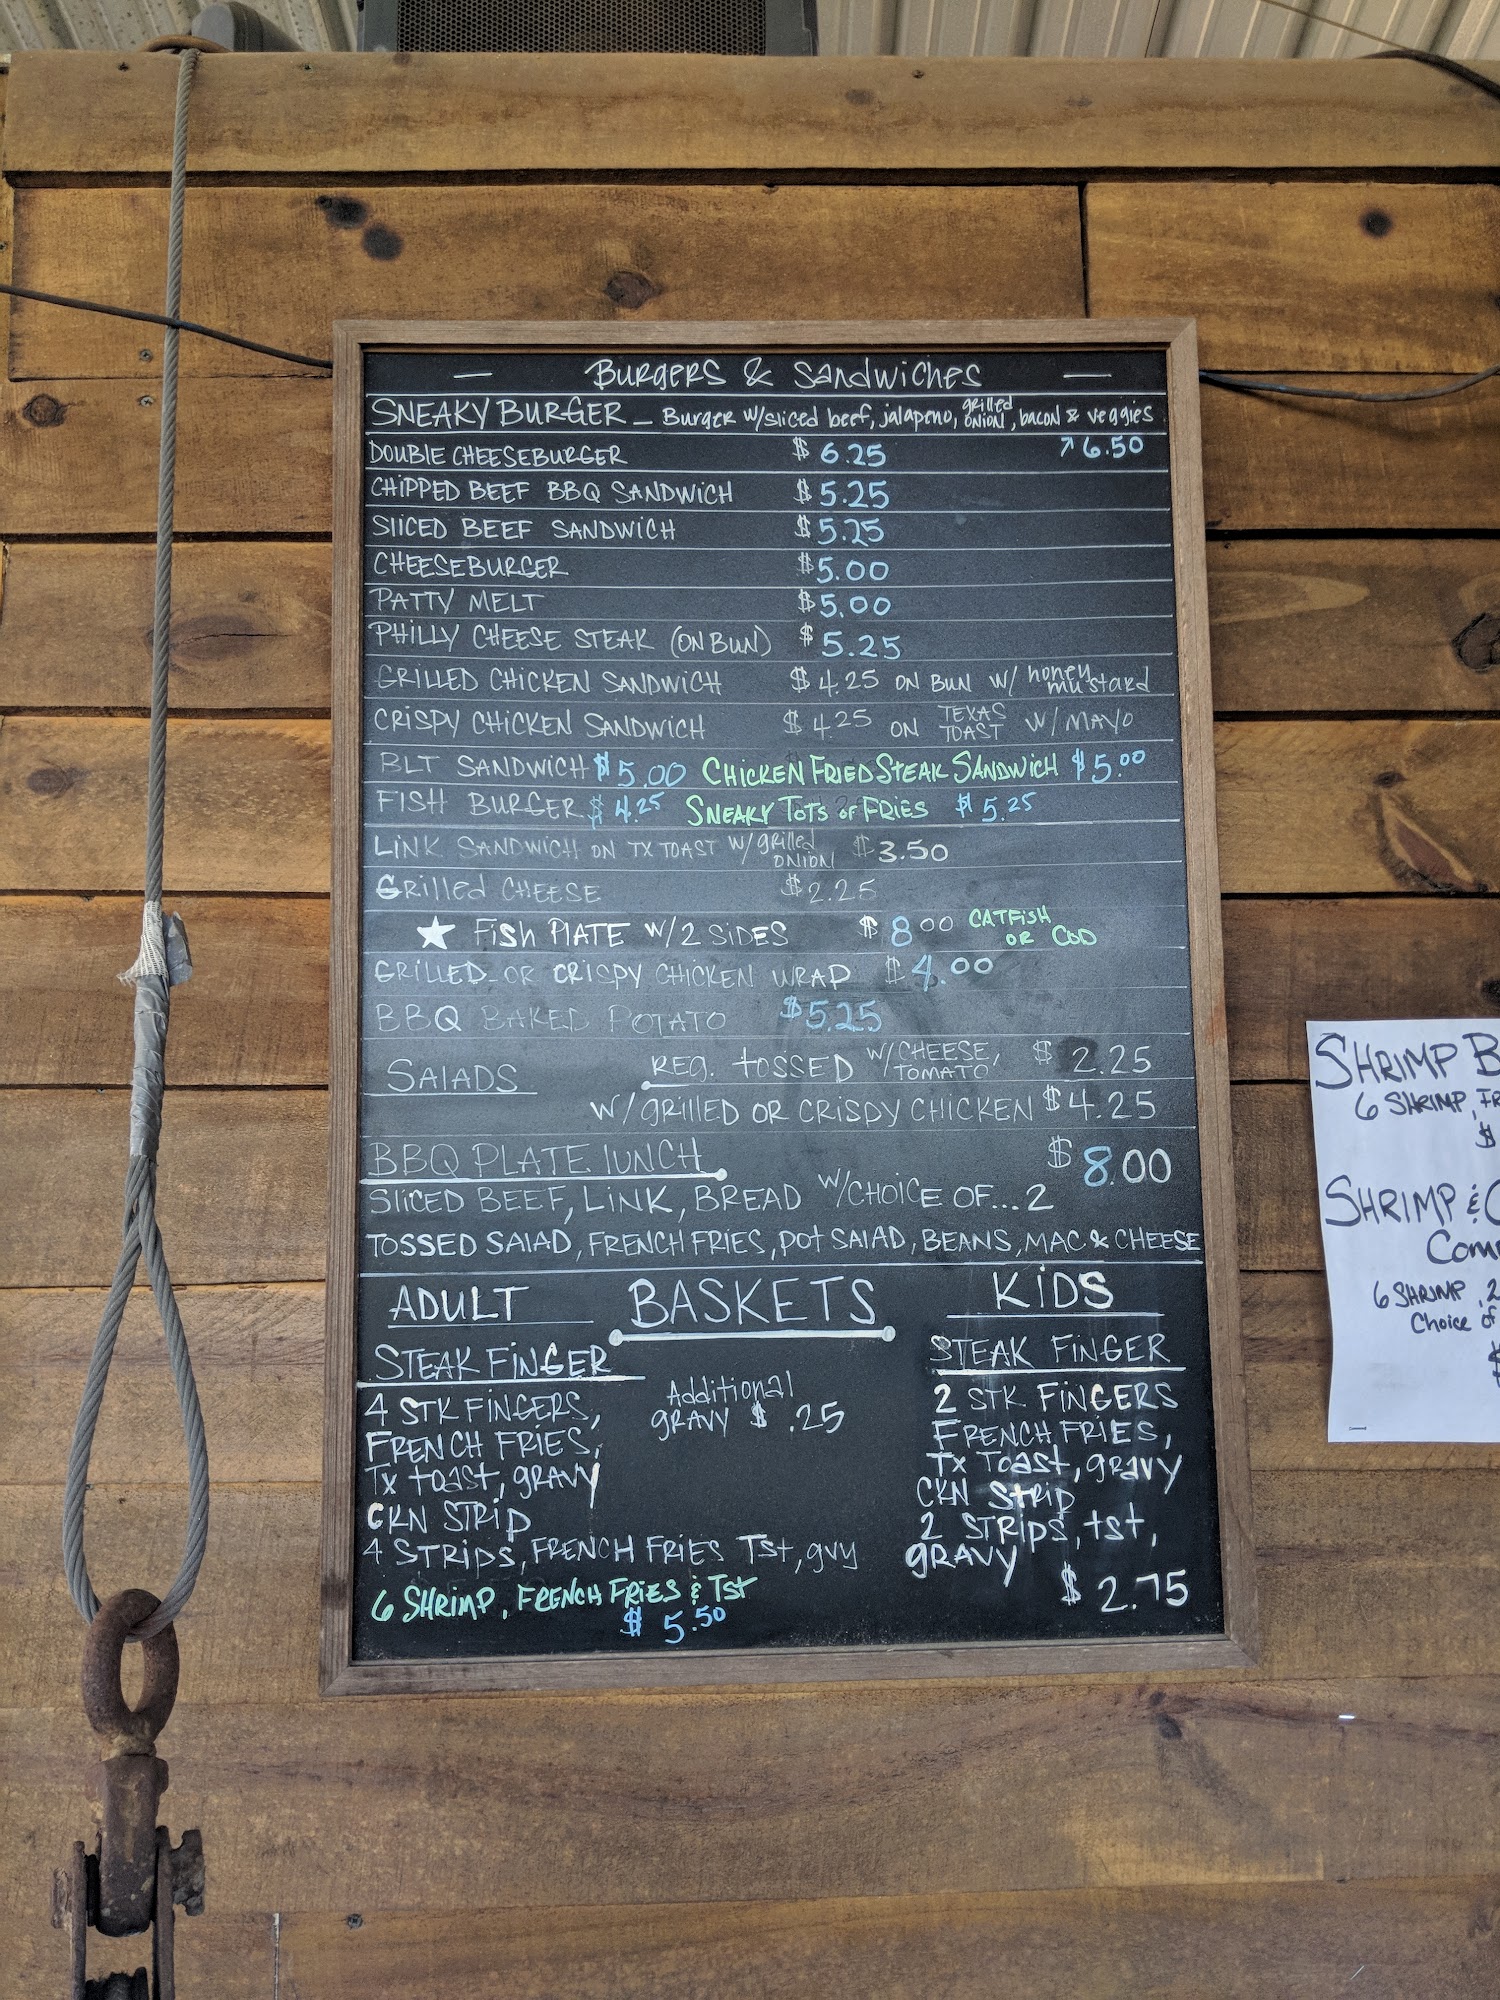 — Burgers & Sandwiches —
SNEAKY BURGER – Burger w/sliced beef, jalapeno, grilled onion, bacon & veggies
↗6.50
DOUBLE CHEESEBURGER $6.25
CHIPPED BEEF BBQ SANDWICH $5.25
SLICED BEEF SANDWICH $5.25
CHEESEBURGER $5.00
PATTY MELT $5.00
PHILLY CHEESE STEAK (ON BUN) $5.25
GRILLED CHICKEN SANDWICH $4.25 ON BUN W/ honey mustard
CRISPY CHICKEN SANDWICH $4.25 ON TEXAS TOAST W/MAYO
BLT SANDWICH $5.00 CHICKEN FRIED STEAK SANDWICH $5.00
FISH BURGER $4.25 SNEAKY TOTS or FRIES $5.25
LINK SANDWICH ON TX TOAST W/grilled ONION $3.50
Grilled CHEESE $2.25
★ Fish PLATE W/2 SIDES $8.00 CATFISH OR COD
GRILLED-OR CRISPY CHICKEN WRAP $4.00
BBQ BAKED POTATO $5.25
SALADS REG. tOSSED W/CHEESE, TOMATO $2.25
W/GRILLED OR CRISPY CHICKEN $4.25
BBQ PLATE LUNCH $8.00
SLICED BEEF, LINK, BREAD W/CHOICE OF...2
TOSSED SALAD, FRENCH FRIES, POt SALAD, BEANS, MAC & CHEESE
ADULT BASKETS KIDS
STEAK FINGER
4 STK FINGERS,
FRENCH FRIES,
Tx toast, gravy
CKN STRIP
4 STRIPS, FRENCH FRIES Tst, gvy
6 SHRIMP, FRENCH FRIES & Tst
$5.50
Additional
gravy $.25
STEAK FINGER
2 STK FINGERS
FRENCH FRIES,
Tx Toast, gravy
CKN Strip
2 STRIPS, tst,
GRAVY
$2.75
SHRIMP B
6 SHRIMP, FR
$
SHRIMP & C
Com
6 SHRIMP, 2
Choice of
$